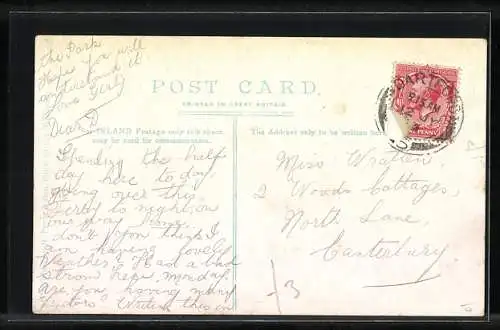 the Park
Hope you will
understand it
Love Gerty
POST CARD.
PRINTED IN GREAT BRITAIN.
INLAND Postage only this space
may be used for communication.
The Address only to be written here.
Dear D
Spending the half
day here to day,
going over this,
Gerty is night, on
one your
don't you think I
am having lovely
Weather & Had a bad
storm here, Monday
are you having many
visitors Writing this in
Miss Wratten,
2 Woods Cottages,
North Lane,
Canterbury.
PENNY